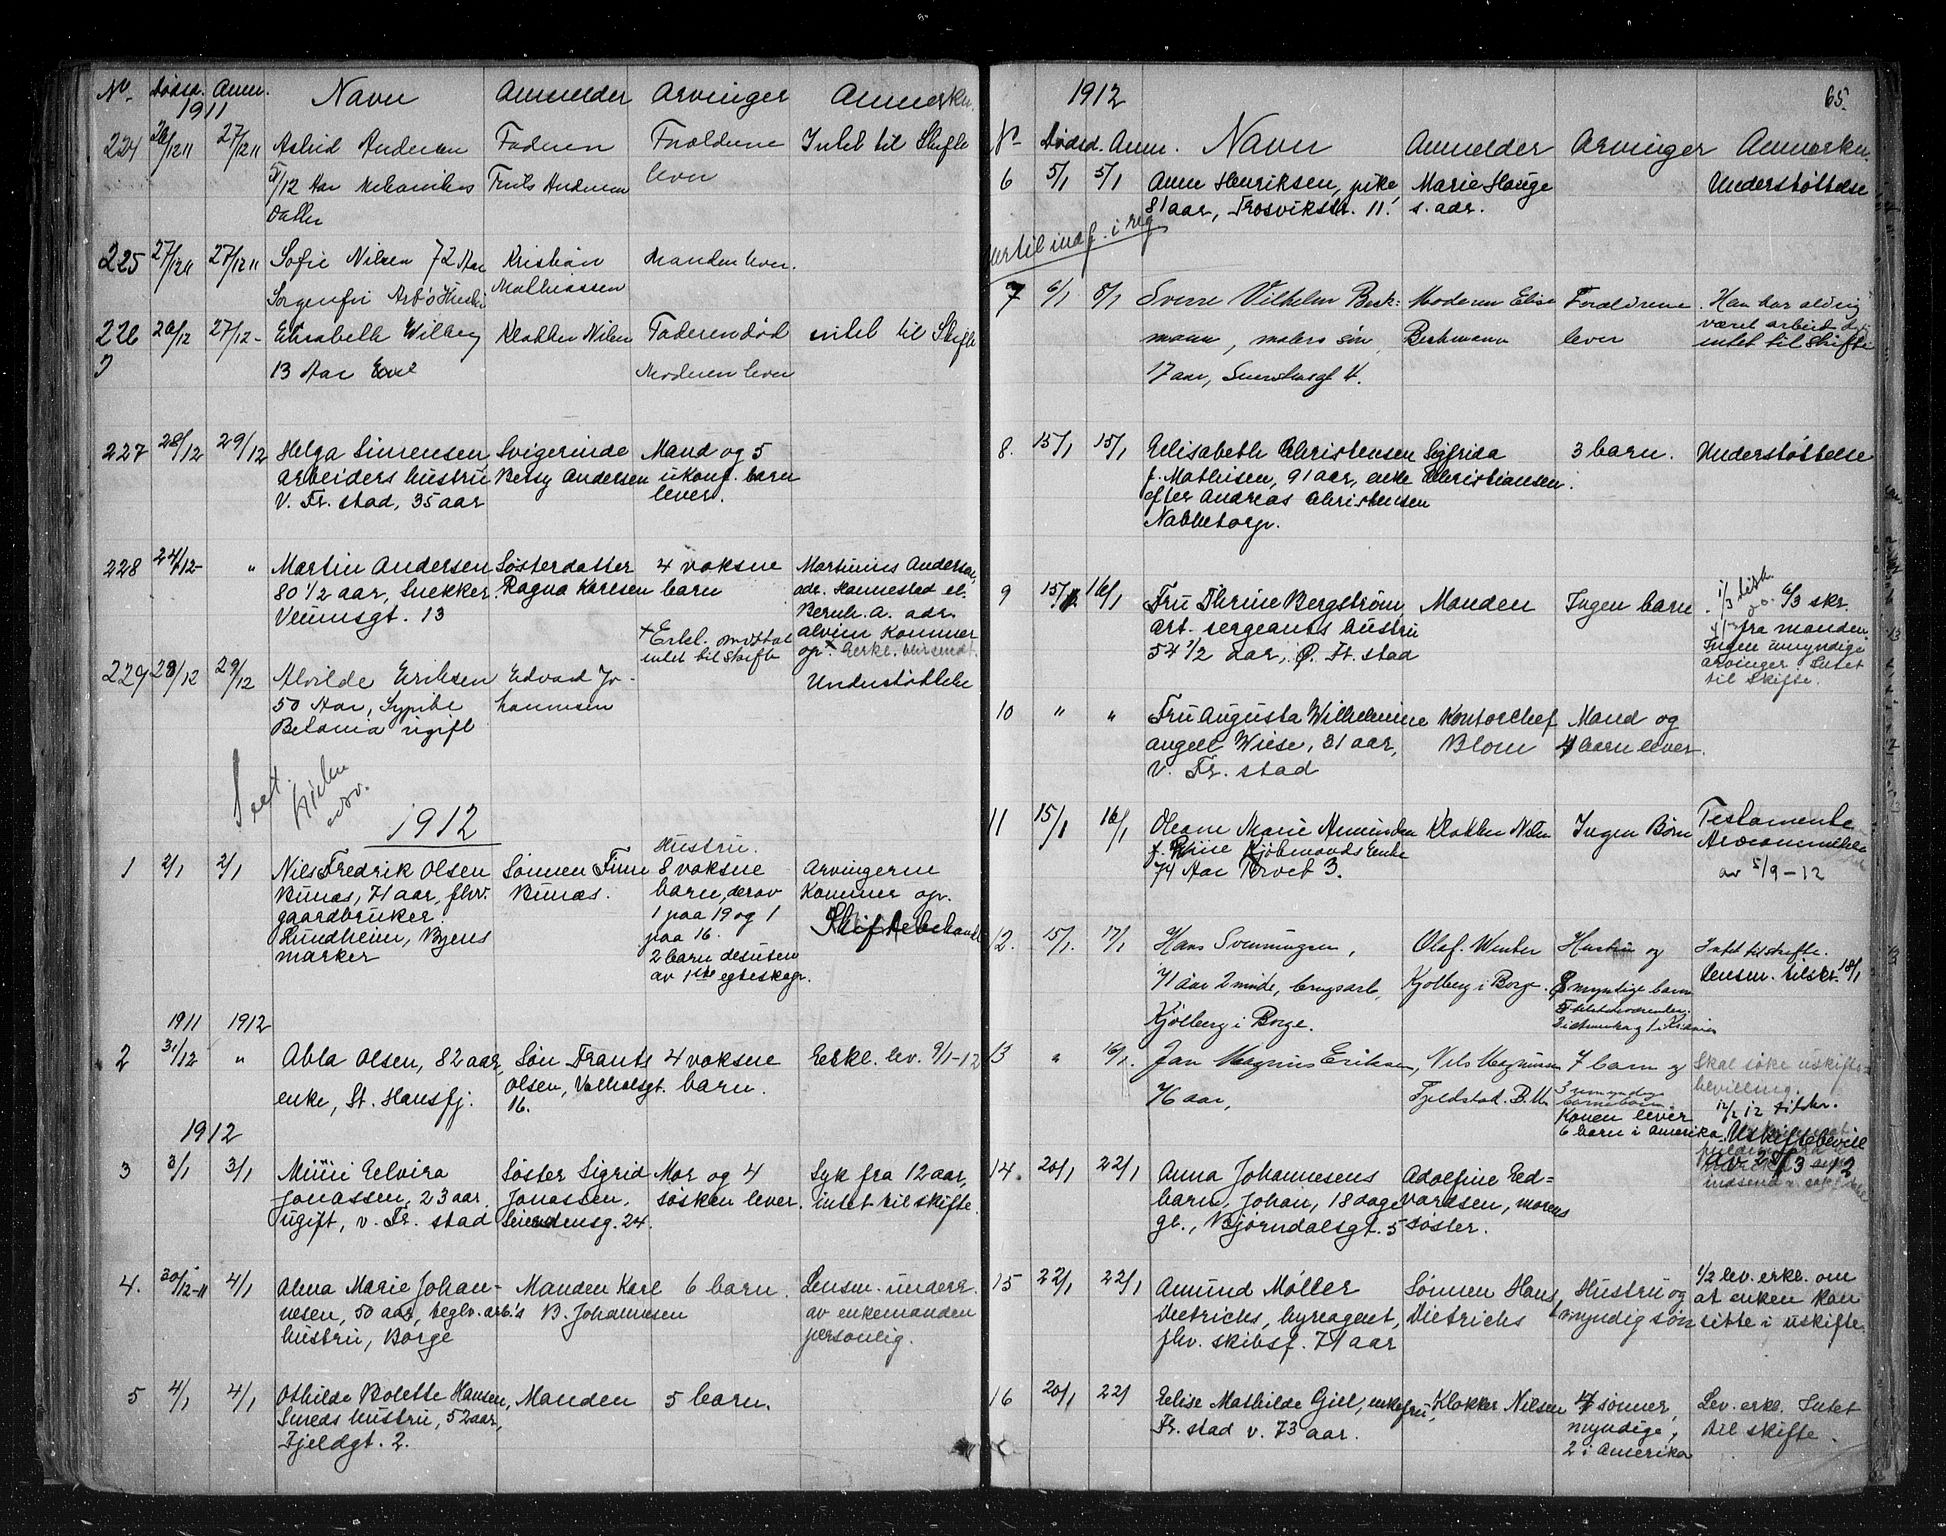 No. Dødsd. Anm. Navn Anmelder Arvinger Anmerkn.
1911
224 26/12 11 27/12 11 Astrid Andersen Faderen Forældrene Intet til Skifte
5/12 Aar Mekanikers Truls Andersen lever
Datter
225 27/12 11 27/12 11 Sofie Nilsen 72 Aar Kristian Manden lever.
Sorgenfri Hustru Mathiassen
226 26/12 27/12 - Elisabeth Wilberg Klokker Nilsen Faderen død intet til Skifte
13 Aar Moderen lever
227 28/12 29/12 Helga Simensen Svigerinde Mand og 5
arbeiders hustru Betsy Andersen ukonf. barn
V. Fr. stad, 35 aar lever.
228 24/12 - " Martin Andersen Søsterdatter 4 voksne Martinius Andersen,
80 1/2 aar, Snekker. Ragna Karlsen barn adr. Hannestad el.
Veumsgt. 13 Bernh. A. adr.
+ Erkl. mottat alvim kommer
intet til Skifte op. + Erkl. blir sendt.
229 28/12 29/12 Alvilde Eriksen Edvard Jo- Understøttelse
50 Aar, Sypike hannesen
Betania ugift
Seet.
1912
Hustru.
1 2/1 2/1 Nils Fredrik Olsen Sønnen Finn 8 voksne Arvingerne
Bunæs, 71 aar, fhv. Bunæs. barn, derav kommer op.
gaardbruker 1 paa 19 og 1 Skiftebehandl
Lundheim, Byens paa 16.
marker 2 barn desuten
av 1ste egteskap.
1911 1912
2 31/12 " Abla Olsen, 82 aar, Søn Frants 4 voksne Erkl. lev. 9/1-12
enke, St. Hansfj. Olsen, Valholsgt. barn.
16.
1912
3 3/1 3/1 Minni Elvira Søster Sigrid Mor og 4 Syk fra 12 aar,
Jonassen, 23 aar Jonassen, søsken lever. intet til skifte.
ugift, v. Fr. stad 24.
4. 30/12-11 4/1 Alma Marie Johan- Manden Karl 6 barn. Lensm. underr.
nesen, 50 aar, teglv. arb.'s B. Johannesen av enkemanden
hustru, Borge personlig.
5 4/1 4/1 Othilde Bolette Hansen, Manden 5 barn.
Smeds hustru, 52 aar,
Fjeldgt. 2.
1912 65.
No Dødsd. Anm. Navn Anmelder Arvinger Anmerkn.
6 5/1 5/1 Anne Henriksen, pike, Marie Hauge Understøttelse
81 aar, Trosvikstr. 11. s. adr.
hertil indf. i reg
7 6/1 8/1 Sverre Vilhelm Beck- Moderen Elise Forældrene Han har aldrig
mann, malers søn, Beckmann lever været arbeid
17 aar, 4. intet til Skifte
8. 15/1 15/1 Elisabeth Christensen Sigfrida 3 barn. Understøttelse
f. Mathisen, 91 aar, enke Christiansen.
efter Andreas Christensen
Nabbetorp.
9 15/1 16/1 Fru Thrine Bergstrøm Manden Ingen barn 6/3 skr.
Art. sergeants hustru fra manden.
54 1/2 aar, Ø. Fr. stad Ingen umyndige
arvinger. Intet
til skifte.
10 " " Fru Augusta Wilhelmine Kontorchef Mand og
Angell Wiese, 31 aar, Blom 4 barn lever.
V. Fr. stad
11 15/1 16/1 Oleane Marie Amundsen Klokker Nilsen Ingen Børn Testamente
f. Kjøbmands Enke
74 Aar Torvet 3. av 5/9-12
12. 15/1. 17/1 Hans Svenningsen, Olaf. Winter Hustru og Intet til skifte.
71 aar 2 mdr, brugsarb., Kjølberg i Borge. 8 myndige barn Lensm. tilskr. 18/1
Kjølberg i Borge.
13 " 16/1. Jan Magnus Eriksen, Nils Magnussen 7 barn og Skal søke uskifte-
76 aar, Fjeldstad. B.M. 3 umyndige bevilling.
barnebarn. 12/2 12 tilskr.
Konen lever
6 barn i Amerika. Uskiftebevill
av 28/3 12
14. 20/1 22/1 Anna Johannesens Adolfine Ed-
barn, Johan, 18 dage vardsen, morens
gl., Bjørndalsgt. 5 søster.
15 22/1 22/1 Amund Møller Sønnen Hans Hustru og 1/2 lev. erkl. om
Dietrichs, hyreagent, Dietrichs 1 myndig søn at enken kan
fhv. skibsf. 71 aar sitte i uskifte.
16 20/1 22/ Elise Mathilde Giel, enkefru, Klokker Nilsen 4 sønner, Lev. erkl. Intet
Fr. stad v. 73 aar. myndige, til skifte.
2 i Amerika